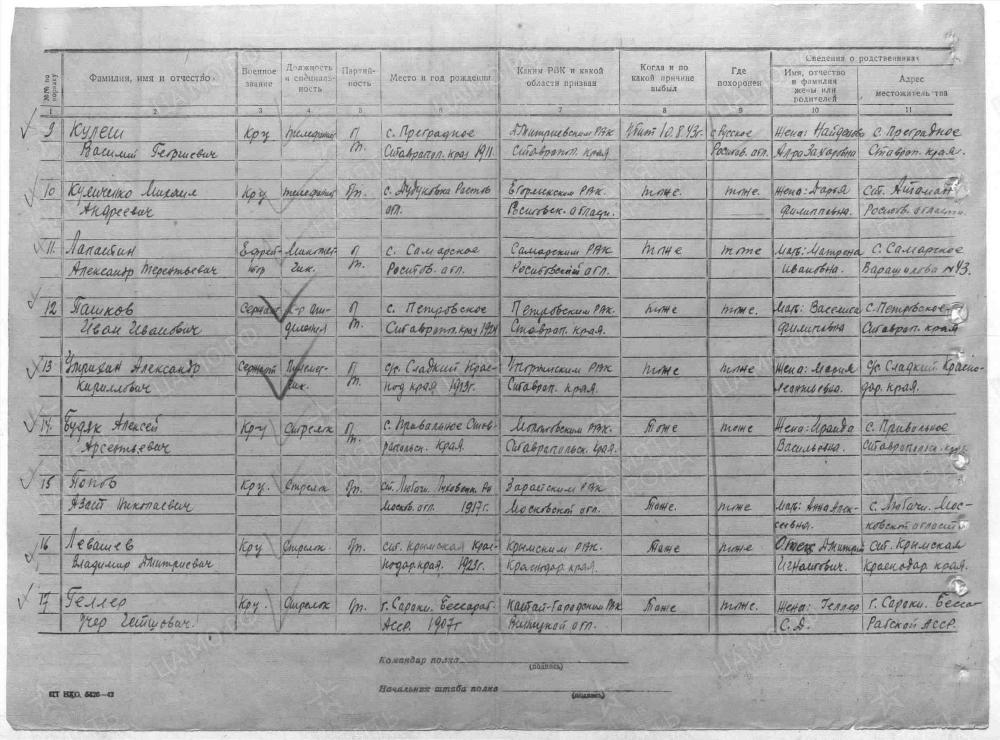 Сведения о родственниках
№№ по порядку
Фамилия, имя и отчество
Военное звание
Должность и специальность
Партийность
Место и год рождения
Каким РВК и какой области призван
Когда и по какой причине выбыл
Где похоронен
Имя, отчество и фамилия жены или родителей
Адрес местожительства
1 2 3 4 5 6 7 8 9 10 11
9 Кулеш Кр-ц телефонист П с. Преградное Дмитриевским РВК Убит 10.8.43г. с Русское Жена: Найденова с. Преградное
Василий Георгиевич т. Ставропол. края 1911 Ставроп. края Ростов. обл. Захаровна Ставроп. края.
10 Куличенко Михаил Кр-ц телефонист б/п. с. Ростов Егорлыкским РВК. тоже. тоже. Жена: Дарья ст.
Андреевич обл. Ростовск. области. Филипповна. Ростов. области
11. Лапастин Ефрей- Миномет- П с. Самарское Самарским РВК тоже тоже Мать: Матрена с. Самарское
Александр Терентьевич тор чик. т. Ростов. обл. Ростовской обл. Ивановна. Варашилова №43.
12 Пашков Сержант К-р отде- П с. Петровское Петровским РВК тоже тоже Мать: Васелиса с. Петровское
Иван Иванович ления т. Ставропол. края 1924 Ставроп. края. Филиповна Ставроп. края
13 Александр Сержант Пулемет- П с/с. Сладкий Крас- РВК тоже тоже. Жена: Мария с/с Сладкий Красно-
Кириллович чик. т. нод края 1913г. Ставроп. края. Леонтьевна. дар. края.
14. Будяк Алексей Кр-ц Стрелок П с. Привольное Став- Молотовским РВК Тоже тоже Жена: Ираида с. Привольное
Арсентьевич т. ропольск. края. Ставропольск. края. Васильевна. Ставропольск. края
15 Попов Кр-ц. Стрелок б/п. ст. Любочи. Зарайским РВК
Николаевич Москов. обл 1917г. Московской обл. Тоже. тоже. Мать: Анна Алек- с. Любочи. Мос-
сеевна. ковской области
16 Левашев Кр-ц Стрелок. б/п. ст. Крымская Крас- Крымским РВК. Тоже тоже. Отец Дмитрий ст. Крымская
Владимир Дмитриевич нодар края. 1925г. Краснодар края. Игнатович. Краснодар края.
17 Геллер Кр-ц. Стрелок б/п. г. Сароки. Бессараб. РВК Тоже тоже. Жена: Геллер г. Сароки. Бесса-
Асср. 1907г обл. С.Д. рабской Асср.
Командир полка
(подпись)
Начальник штаба полка
(подпись)